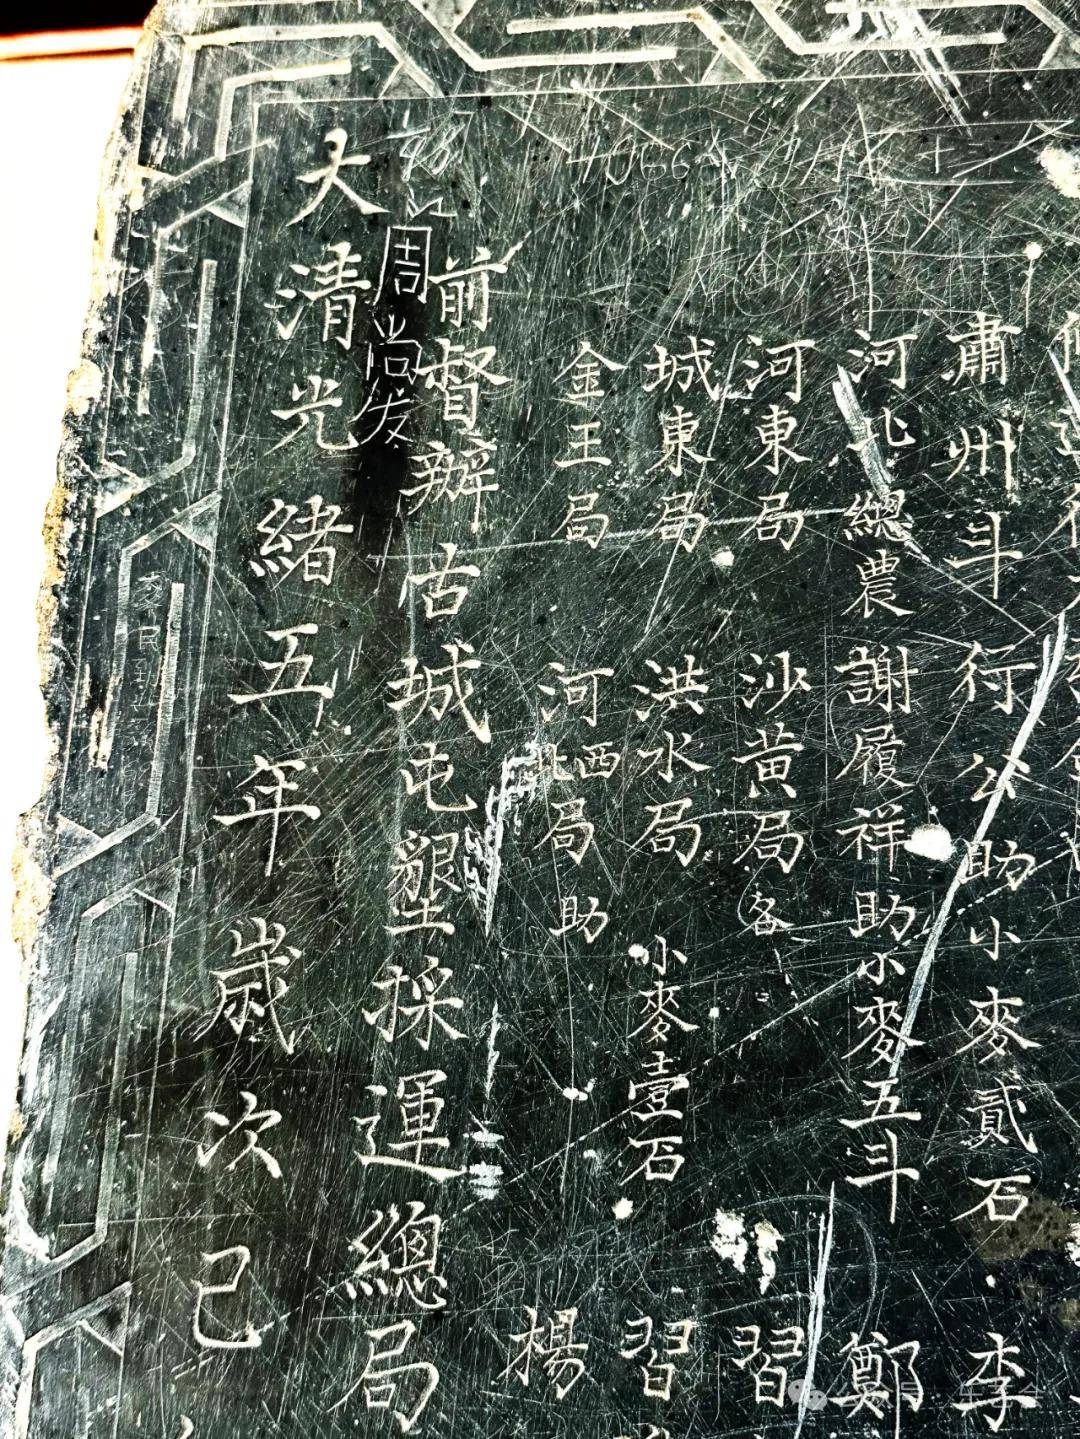 肅州斗行公助小麥貳石　李
河北總農　謝履祥助小麥五斗　鄭
河東局　沙黃局各　習
城東局　洪水局　小麥壹石　習
金王局　河西北局助　楊
前督辦古城屯墾採運總局
周尚发
大清光緒五年歲次己